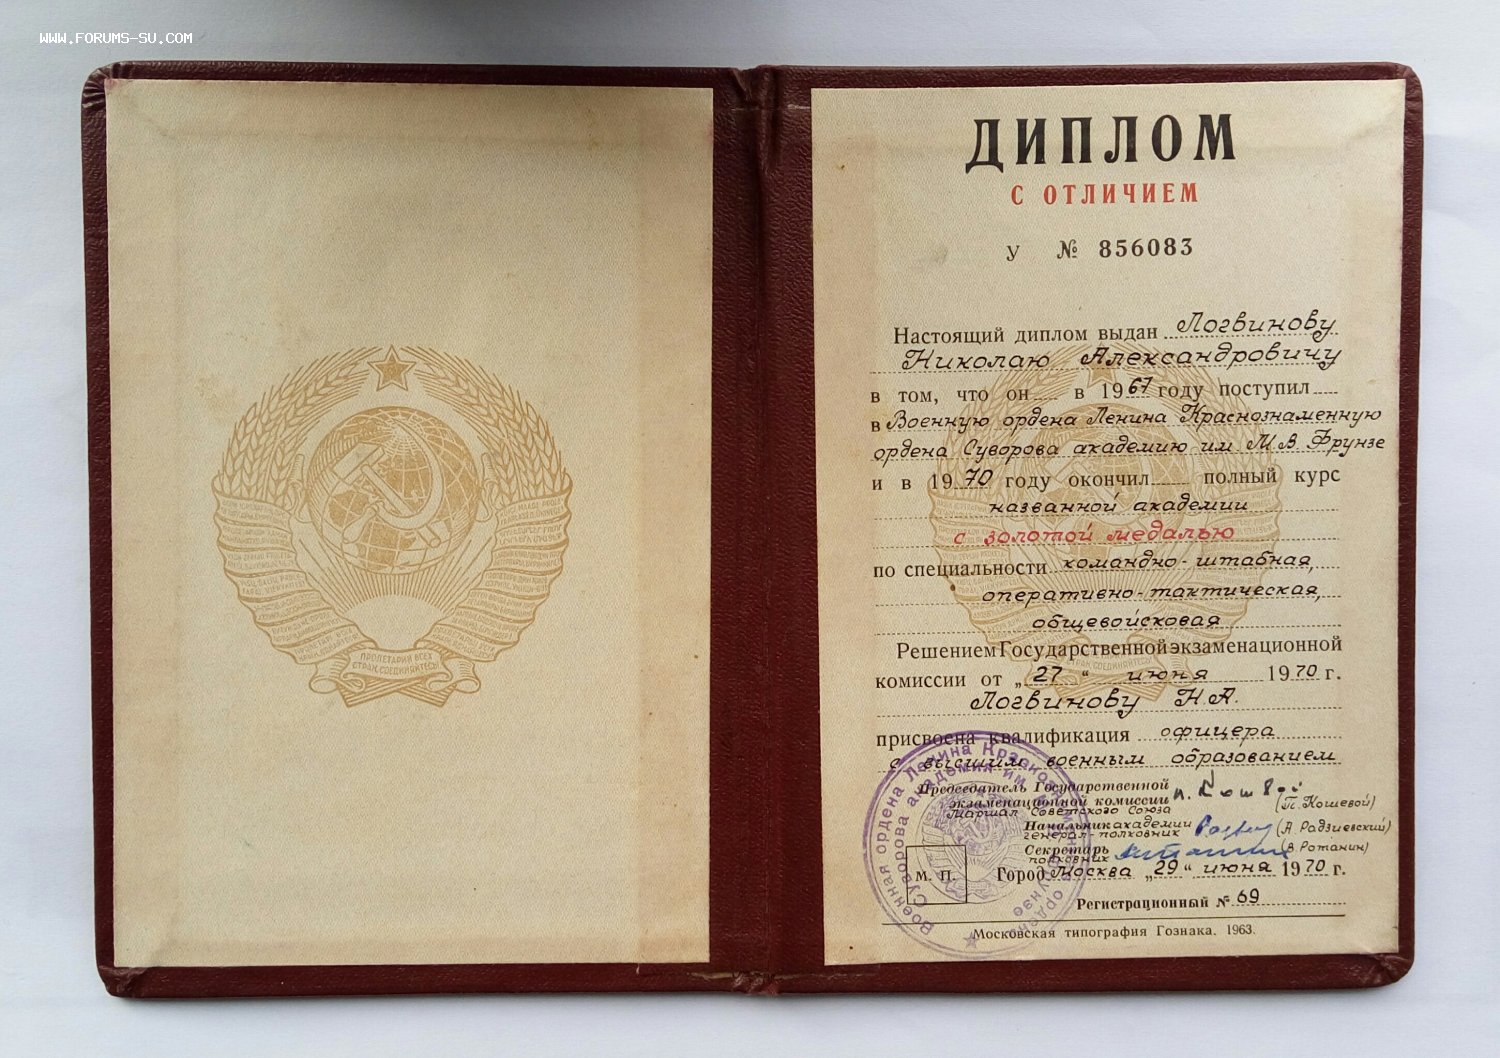 WWW.FORUMS-SU.COM
ПРОЛЕТАРИИ ВСЕХ
СТРАН, СОЕДИНЯЙТЕСЬ!
ДИПЛОМ
С ОТЛИЧИЕМ
У № 856083
Настоящий диплом выдан Логвинову
Николаю Александровичу
в том, что он в 1967 году поступил
в Военную ордена Ленина Краснознаменную
ордена Суворова академию им М.В. Фрунзе
и в 1970 году окончил полный курс
названной академии
с золотой медалью
по специальности командно-штабная,
оперативно-тактическая,
общевойсковая
Решением Государственной экзаменационной
комиссии от „27“ июня 1970 г.
Логвинову Н.А.
присвоена квалификация офицера
с высшим военным образованием
Председатель Государственной
экзаменационной комиссии
Маршал Советского Союза (П. Кошевой)
Начальник академии
генерал-полковник (А. Радзиевский)
Секретарь
полковник (В. Ротанин)
М. П.
Город Москва „29“ июня 1970 г.
Регистрационный № 69
Московская типография Гознака. 1963.